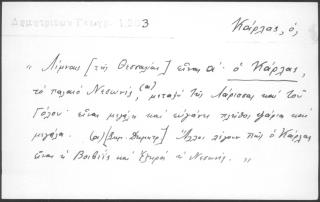 Δημητριέων Γεωγρ. 123
Κάρλας, ὁ,
" Λίμναις [τῆς Θεσσαλίας] εἶναι αἱ· ὁ Κάρλας,
τὸ παλαιὸ Νεσωνίς, (α), μεταξὺ τῆς Λάρισσας καὶ τοῦ
Γόλου· εἶναι μεγάλη καὶ εὐγάνει πλῆθος ψάρια καὶ
μεγάλα. (α) [Σημ. Δημητρ.] Ἄλλοι λέγουν πῶς ὁ Κάρλας
εἶναι ἡ Βοιβηῒς καὶ ἡ Νεσωνίς. "